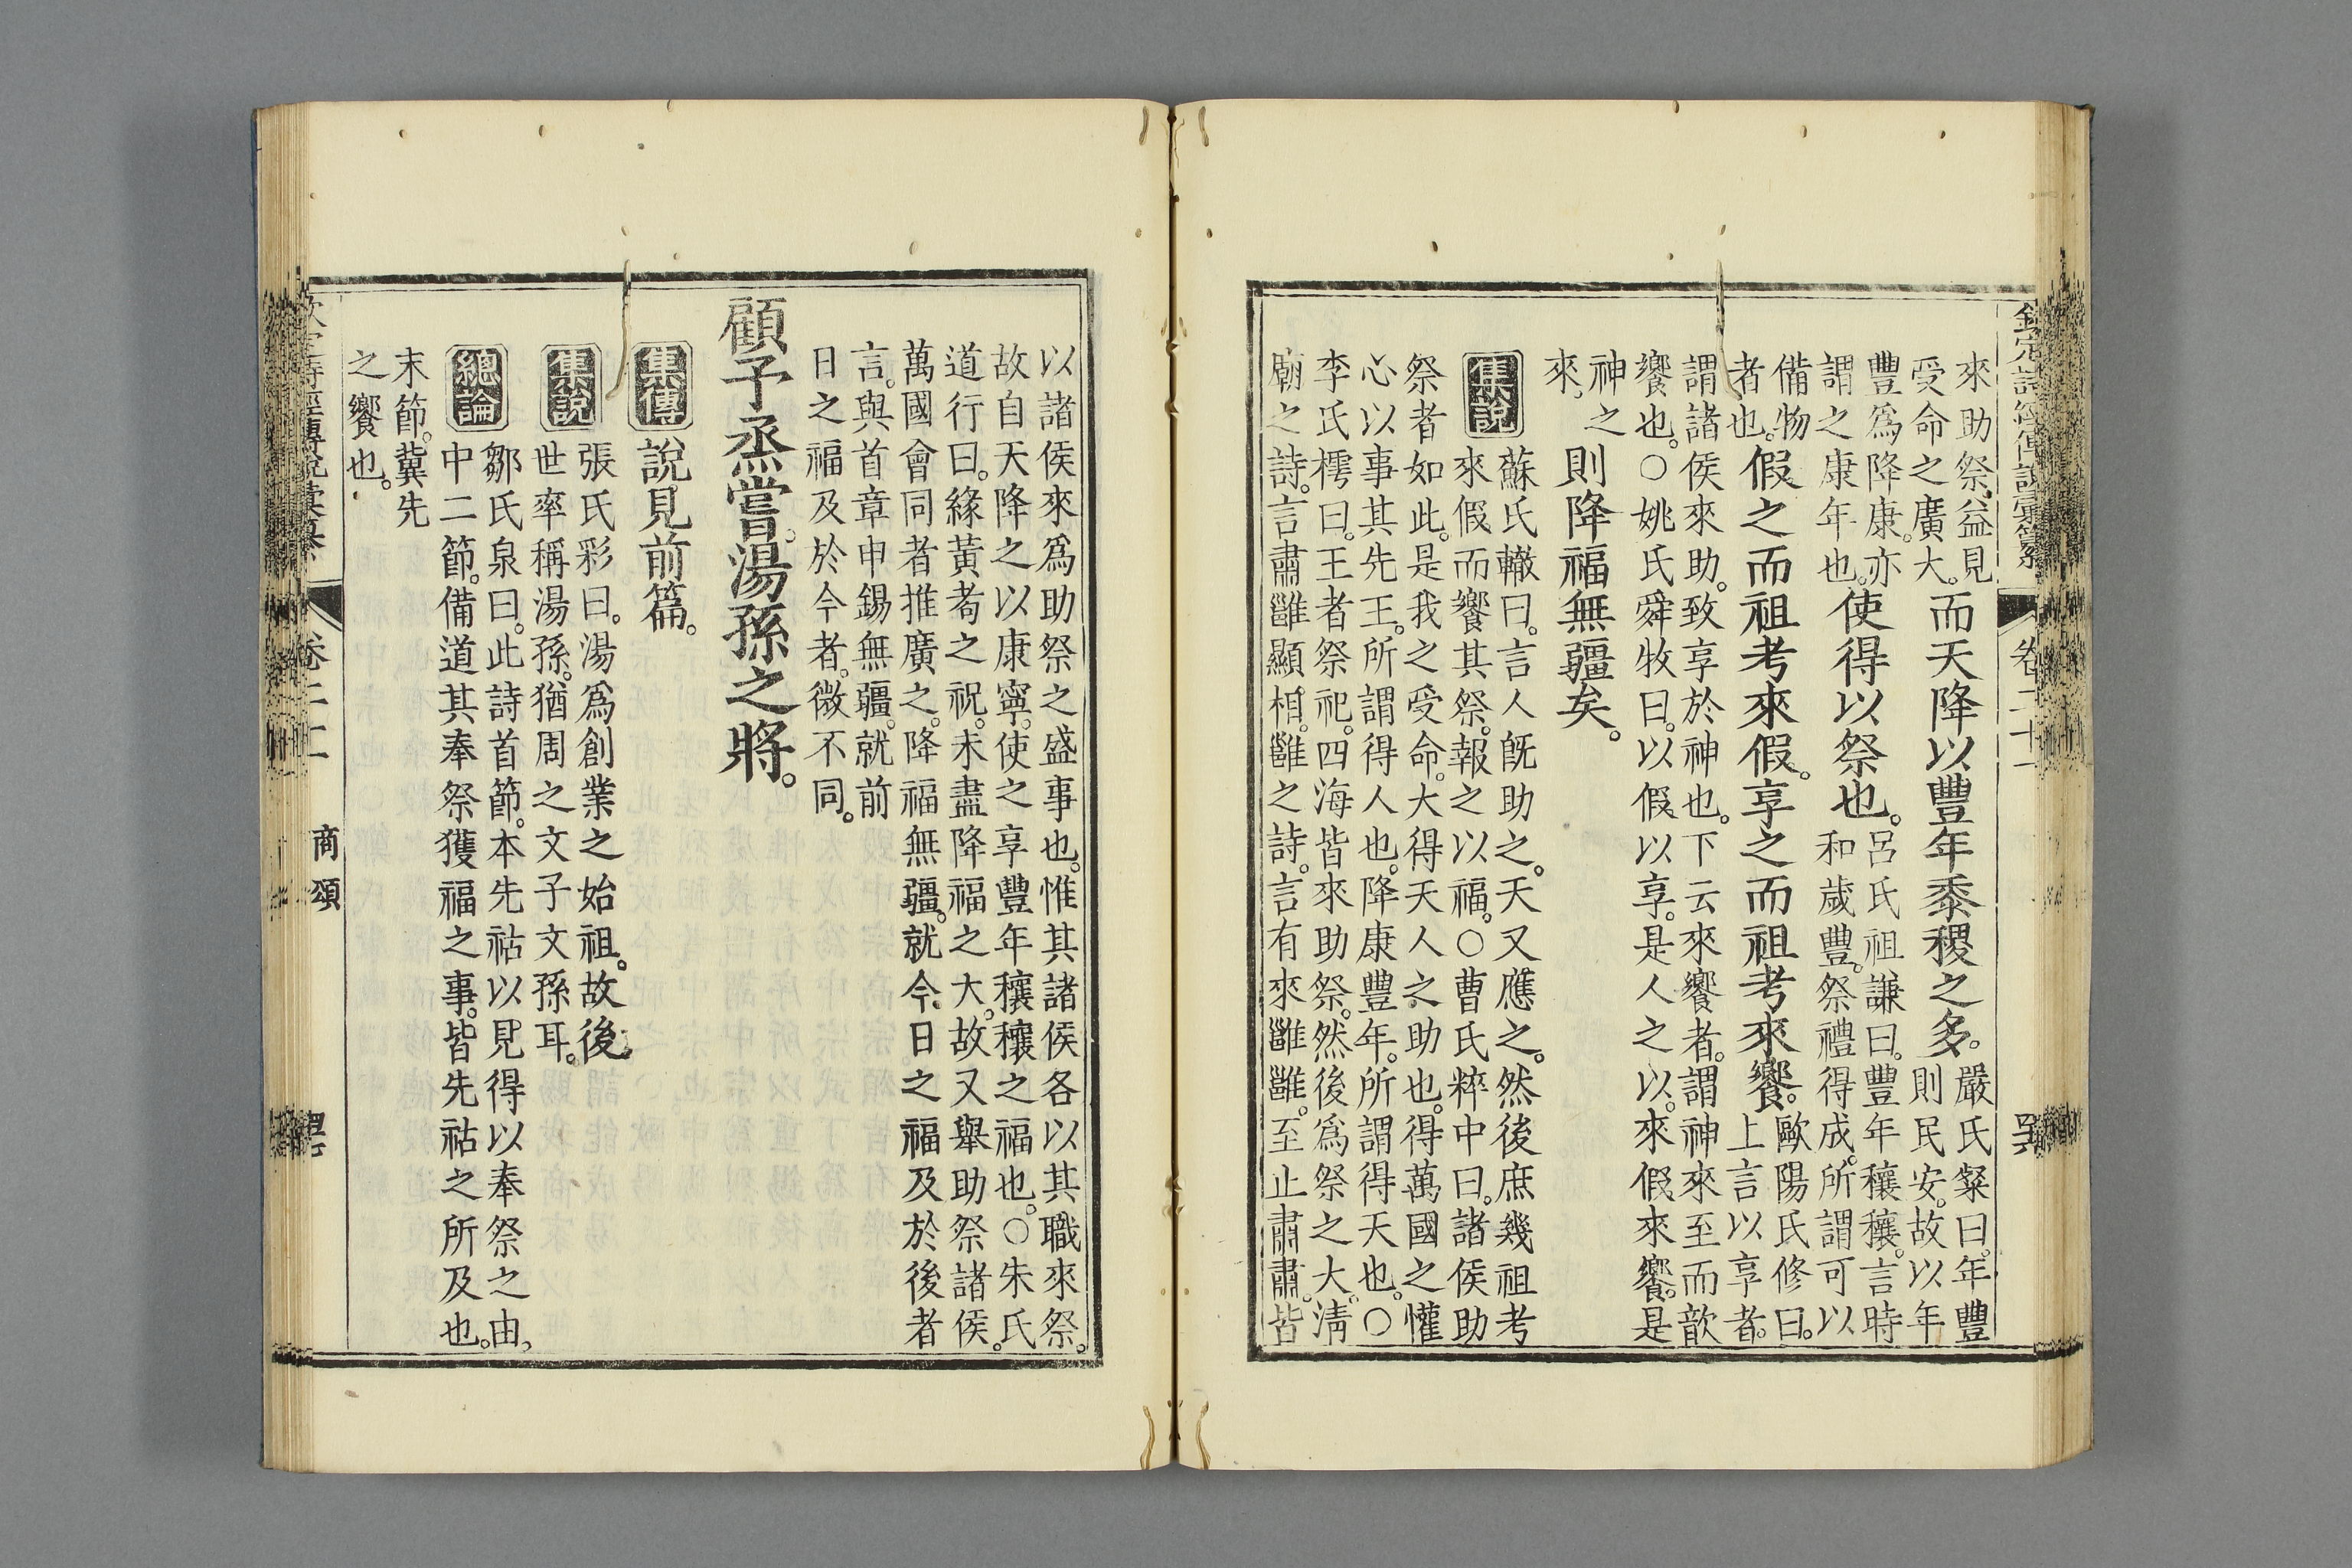 欽定詩經傳說彙纂 卷二十一
來助祭益見
受命之廣大。
而天降以豐年黍稷之多。
嚴氏粲曰。年豐
則民安。故以年
豐爲降康。亦
謂之康年也。
使得以祭也。
呂氏祖謙曰。豐年穰穰。言時
和歲豐。祭禮得成。所謂可以
備物
者也。
假之而祖考來假。享之而祖考來饗。
歐陽氏修曰。
上言以享者。
謂諸侯來助。致享於神也。下云來饗者。謂神來至而歆
饗也。○姚氏舜牧曰。以假以享。是人之以。來假來饗。是
神之
來。
則降福無疆矣。
集說
蘇氏轍曰。言人旣助之。天又應之。然後庶幾祖考
來假而饗其祭。報之以福。○曹氏粹中曰。諸侯助
祭者如此。是我之受命。大得天人之助也。得萬國之懽
心以事其先王。所謂得人也。降康豐年。所謂得天也。○
李氏樗曰。王者祭祀。四海皆來助祭。然後爲祭之大。淸
廟之詩。言肅雝顯相。雝之詩。言有來雝雝。至止肅肅。皆
以諸侯來爲助祭之盛事也。惟其諸侯各以其職來祭。
故自天降之以康寧。使之享豐年穰穰之福也。○朱氏
道行曰。緣黃耇之祝。未盡降福之大。故又舉助祭諸侯。
萬國會同者推廣之。降福無疆。就今日之福及於後者
言。與首章申錫無疆。就前
日之福及於今者。微不同。
顧予烝嘗。湯孫之將。
集傳
說見前篇。
集說
張氏彩曰。湯爲創業之始祖。故後
世率稱湯孫。猶周之文子文孫耳。
總論
鄒氏泉曰。此詩首節。本先祜以見得以奉祭之由。
中二節。備道其奉祭獲福之事。皆先祜之所及也。
末節。冀先
之饗也。
卷二十一 商頌